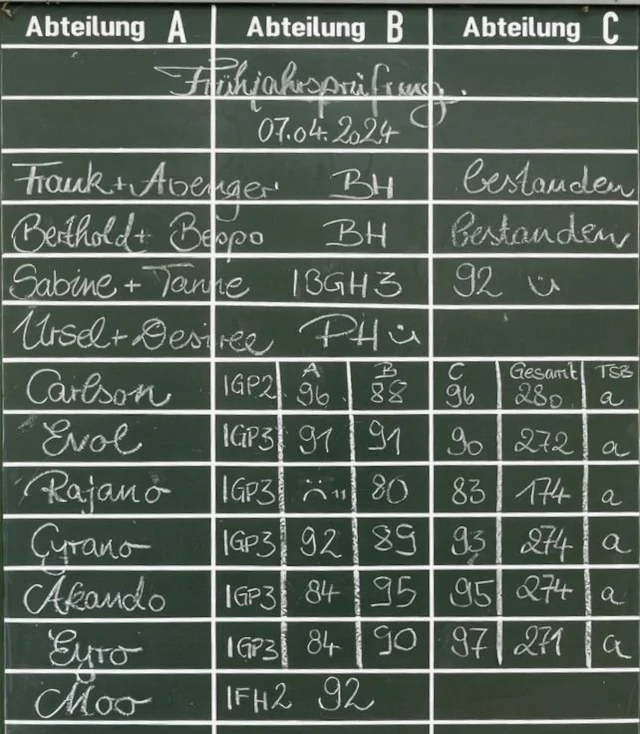 Abteilung A Abteilung B Abteilung C
Frühjahrsprüfung.
07.04.2024
Frank + Avenger BH bestanden
Berthold + Beppo BH bestanden
Sabine + Tanne IBGH3 92 ü
Ursel + Desiree PH ü
A B C Gesamt TSB
Carlson IGP2 96 88 96 280 a
Evol IGP3 91 91 90 272 a
Rajano IGP3 11 80 83 174 a
Cyrano IGP3 92 89 93 274 a
Akando IGP3 84 95 95 274 a
Eyro IGP3 84 90 97 271 a
Moo IFH2 92